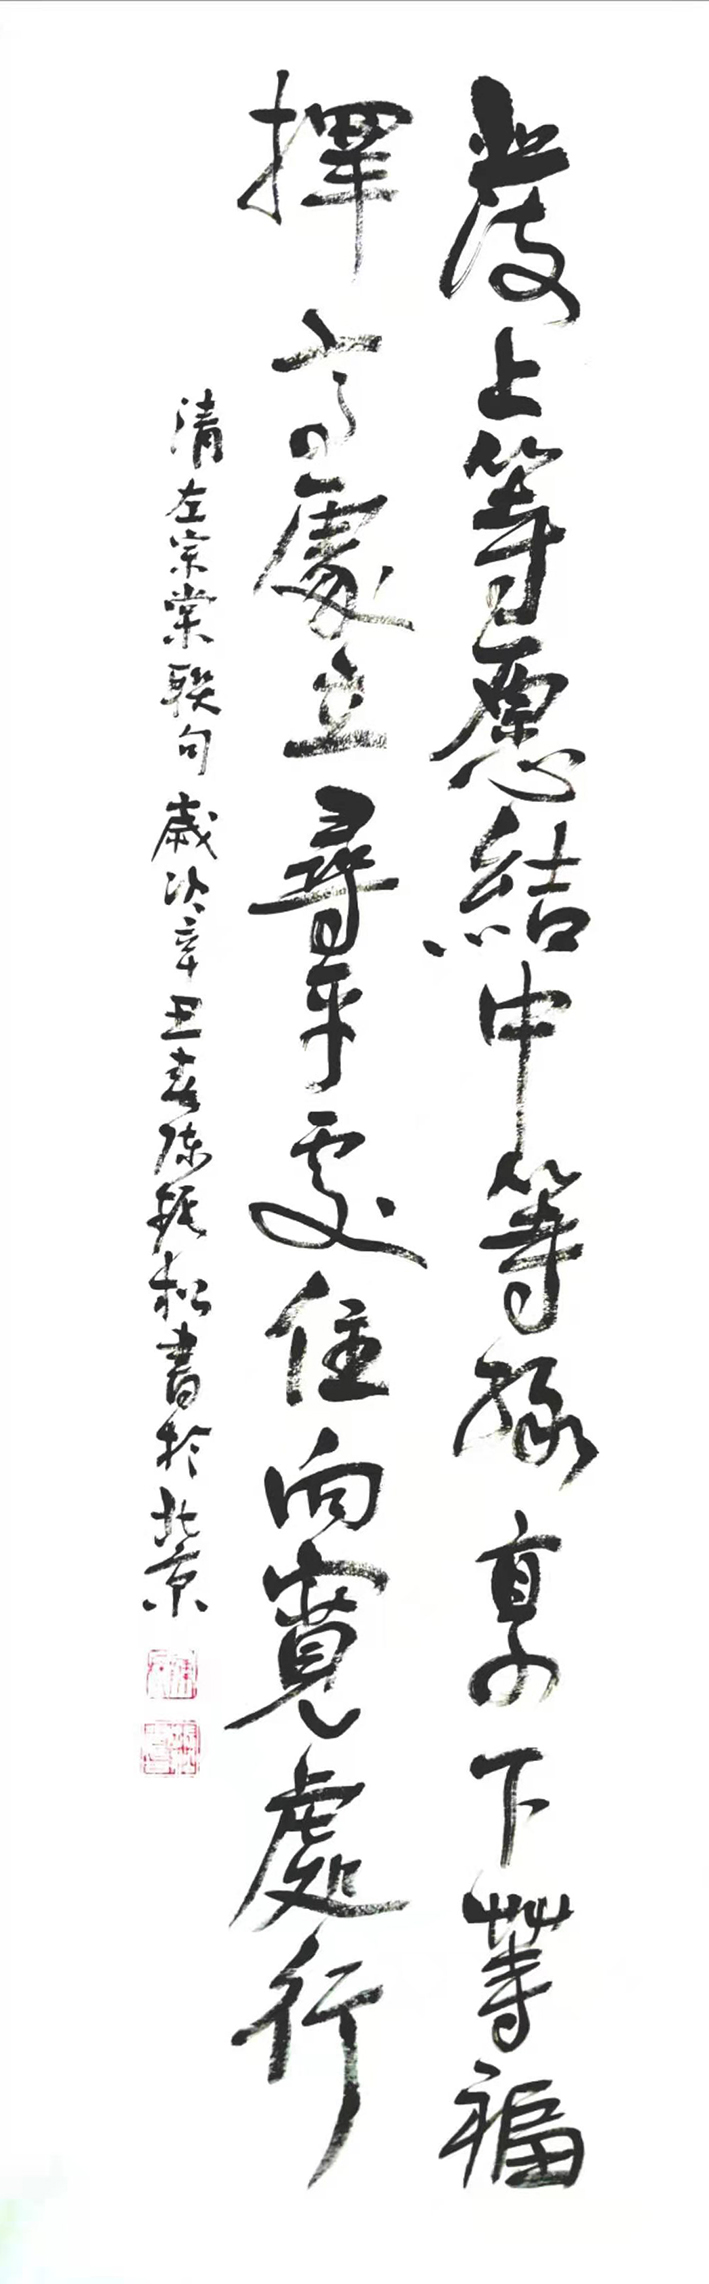 發上等愿結中等緣享下等福
擇高處立尋平處住向寬處行
清左宗棠联句歲次辛丑春陈松書於北京